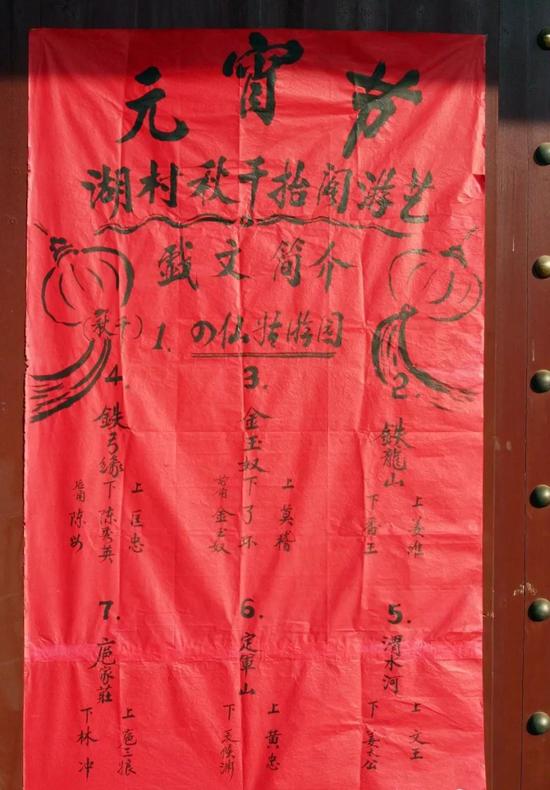 元宵节
湖村秋千抬阁游艺
戯文简介
(秋千) 1. の仙 游园
2.
鉄龍山
上 姜维
下 番王
3.
金玉奴
上 莫稽
下 丫环
金玉奴
4.
鉄弓缘
上 匡忠
下 陈秀英
陈母
5.
渭水河
上 文王
下 姜太公
6.
定軍山
上 黄忠
下 夏侯渊
7.
扈家莊
上 扈三娘
下 林冲